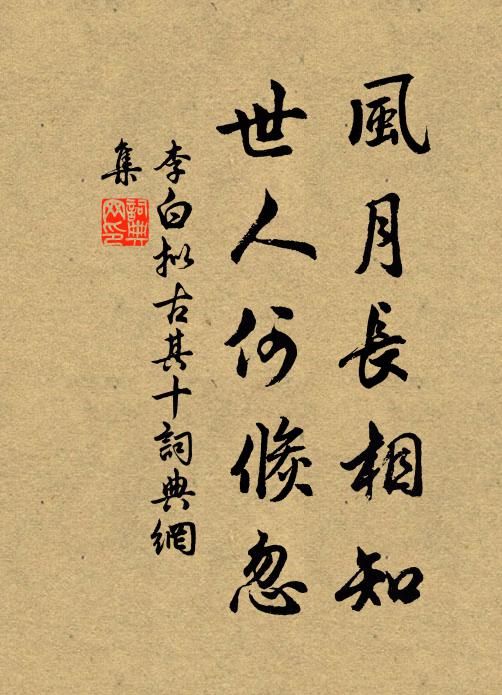 風月長相知
世人何倏忽
李白拟古其十詞典網
集
詞典網印